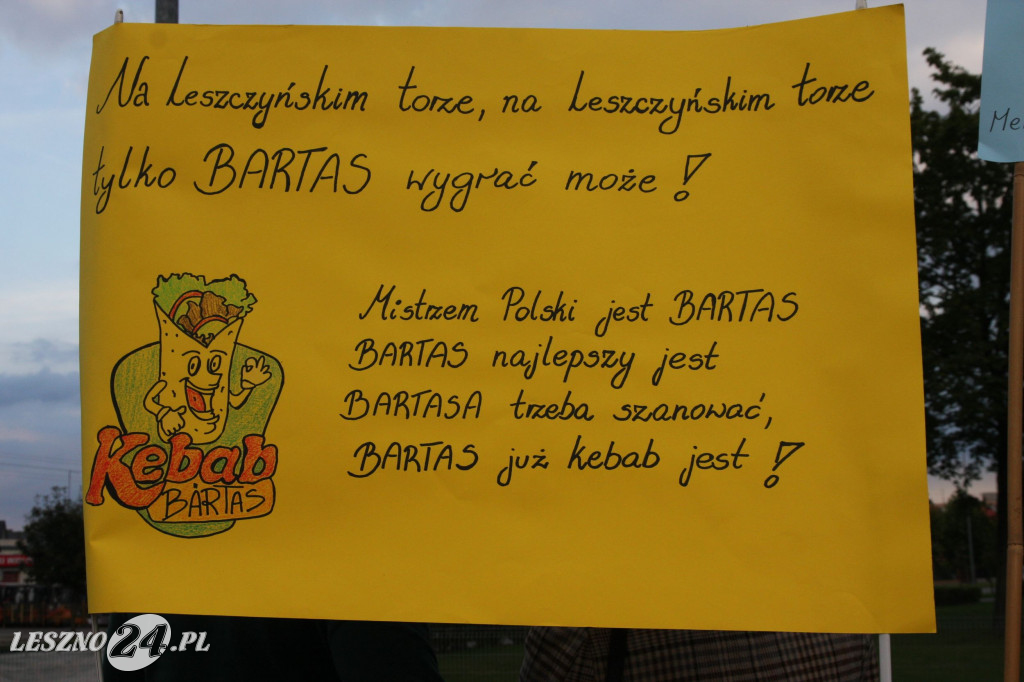 Na Leszczyńskim torze, na Leszczyńskim torze
tylko BARTAS wygrać może!
Mistrzem Polski jest BARTAS
BARTAS najlepszy jest
BARTASA trzeba szanować,
BARTAS już kebab jest!
Kebab
BARTAS
Me
LESZNO24.PL